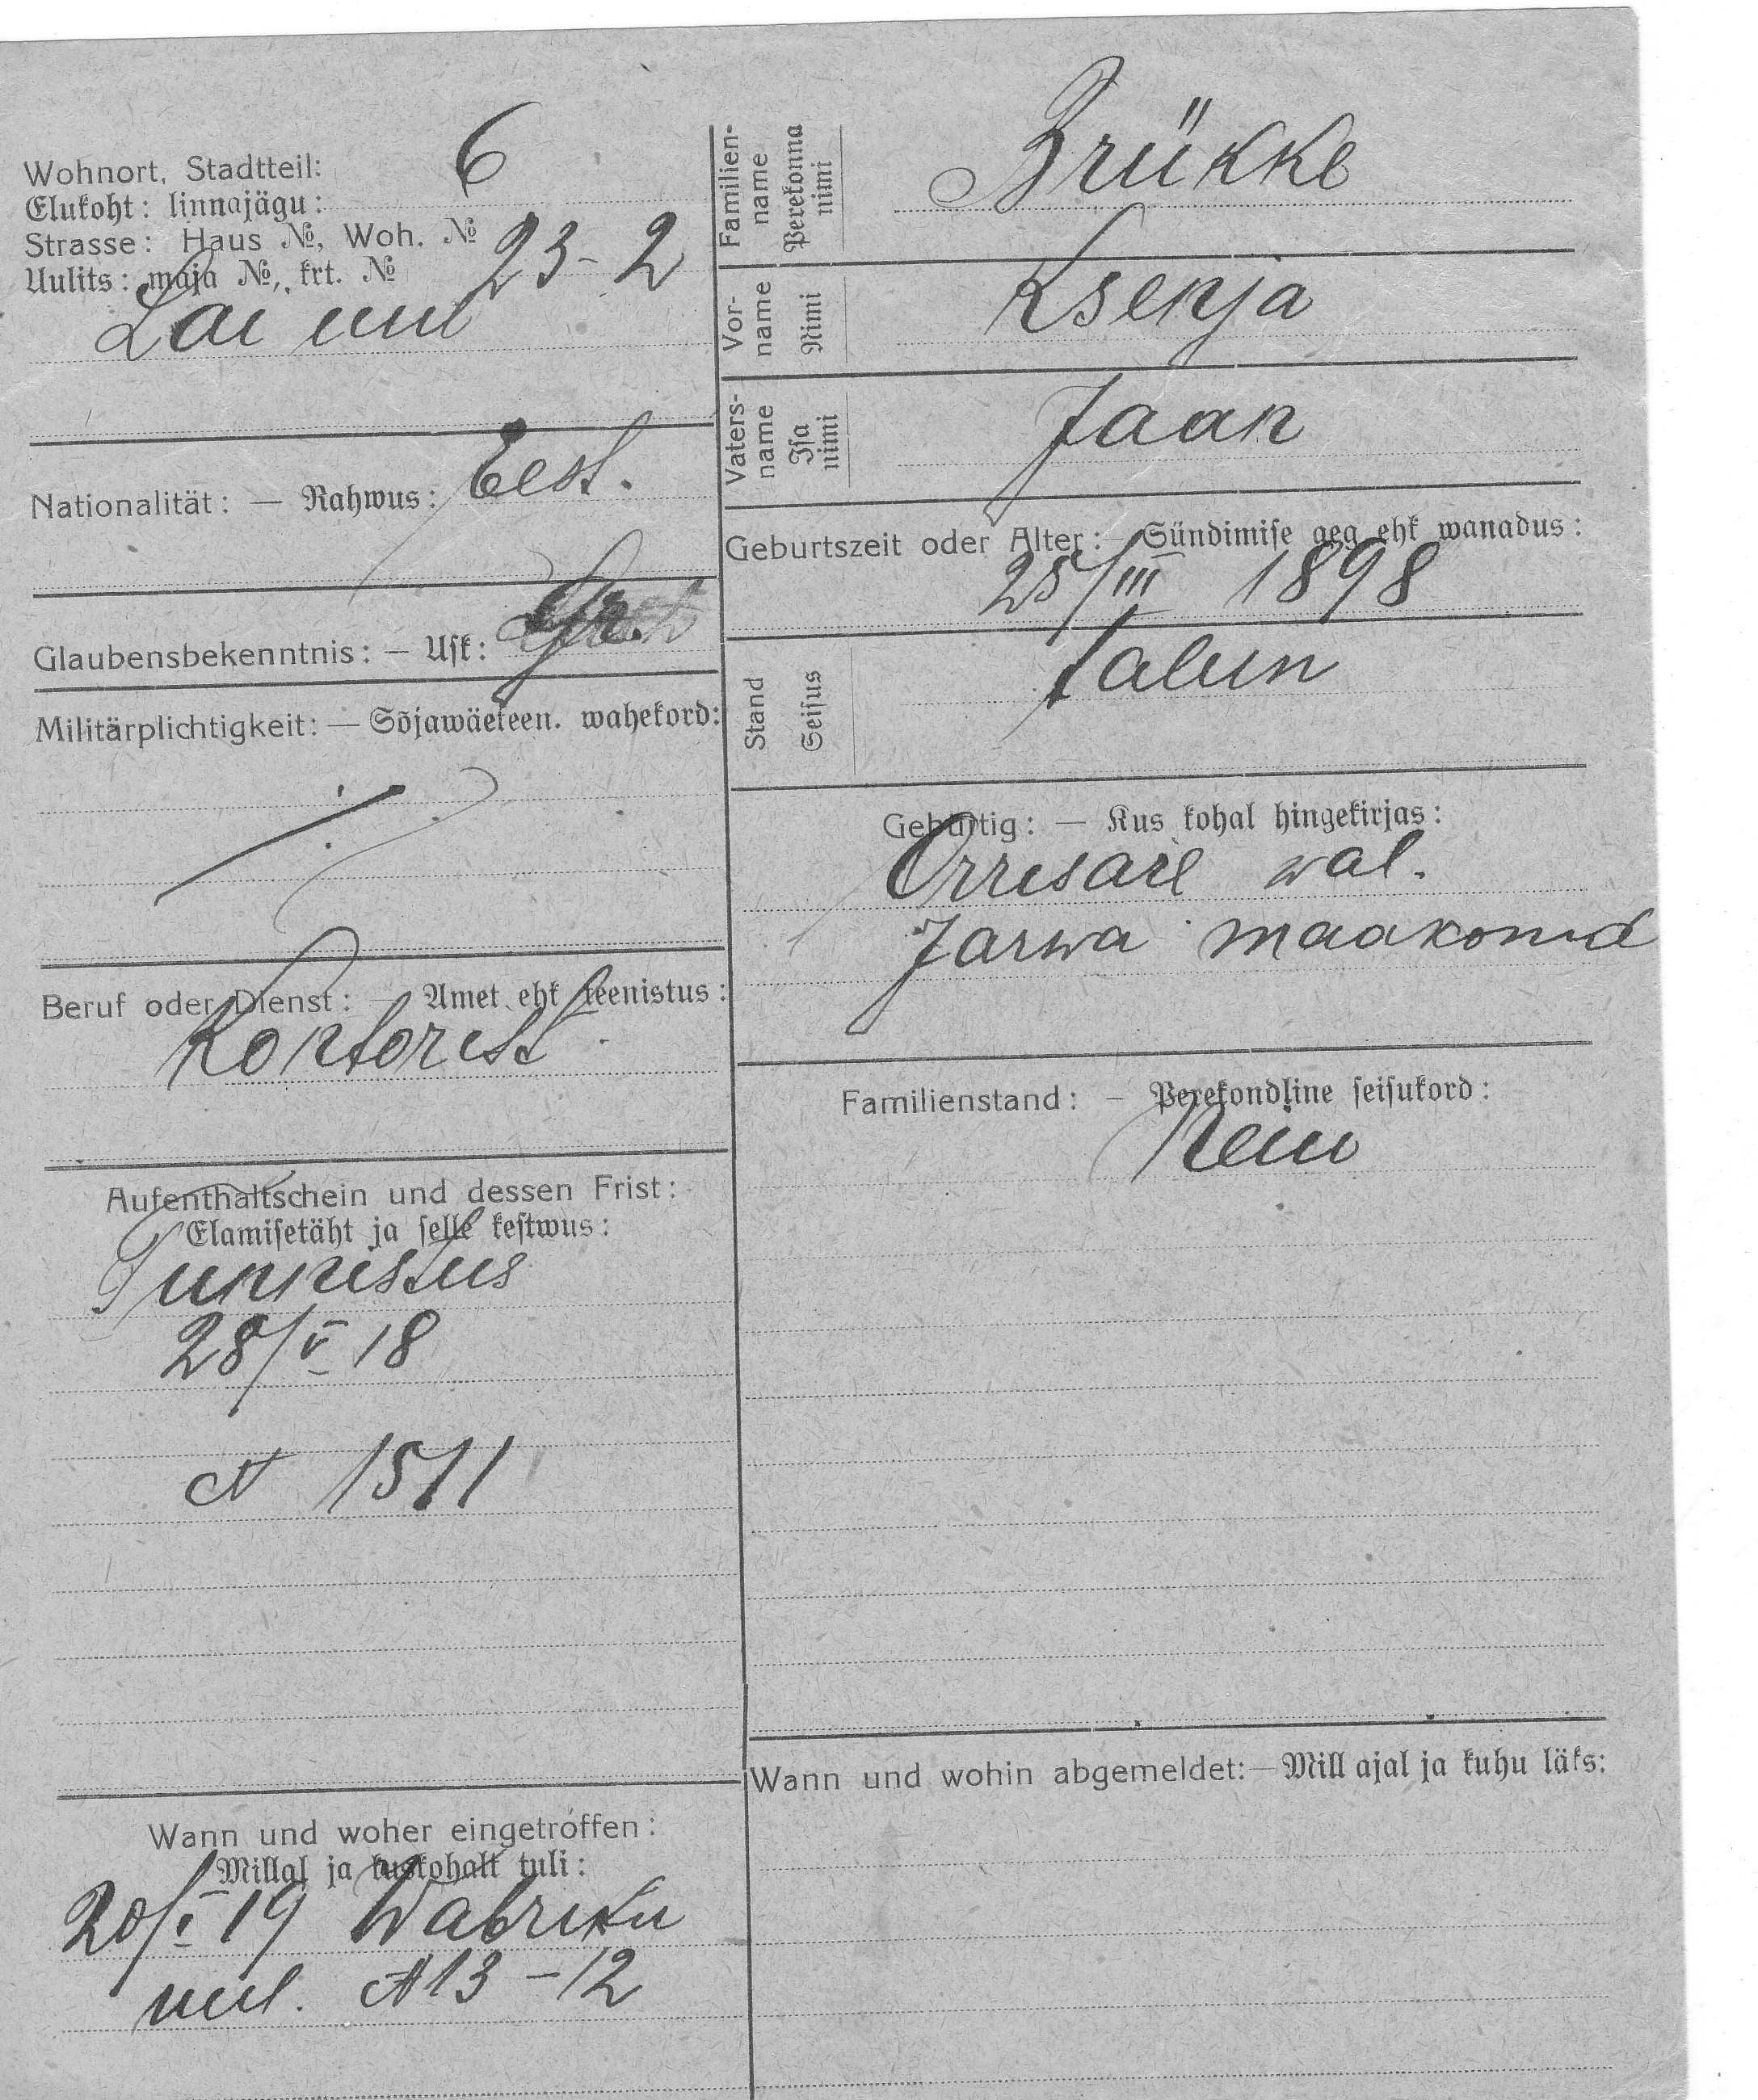 Wohnort, Stadtteil: 6
Elukoht: linnajägu:
Strasse: Haus №, Woh. № 23-2
Uulits: maja №, krt. №
Lai uul
Nationalität: — Rahwus: Eest.
Glaubensbekenntnis: — Usk: Gr.
Militärplichtigkeit: — Sõjawäeteen. wahekord:
Beruf oder Dienst: — Amet ehk teenistus:
Kontorist
Aufenthaltschein und dessen Frist:
Elamisetäht ja selle kestwus:
Tunnistus
28/V 18
№ 1511
Wann und woher eingetroffen:
Millal ja kuskohalt tuli:
20/I 19 Wabriku
uul. № 13-12
Familien-
name
Perekonna
nimi
Brükke
Vor-
name
Nimi
Ksenja
Vaters-
name
Isa
nimi
Jaan
Geburtszeit oder Alter: — Sündimise aeg ehk wanadus:
25/III 1898
Stand
Seisus
talun
Gebürtig: — Kus kohal hingekirjas:
Orrisare wal.
Jarwa maakond
Familienstand: — Perekondline seisukord:
Neiu
Wann und wohin abgemeldet: — Mill ajal ja kuhu läks: